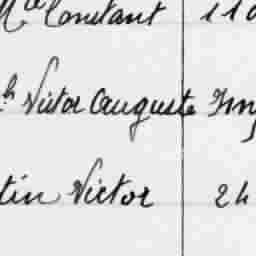 Constant 11
h Victor Auguste
tin Victor 24